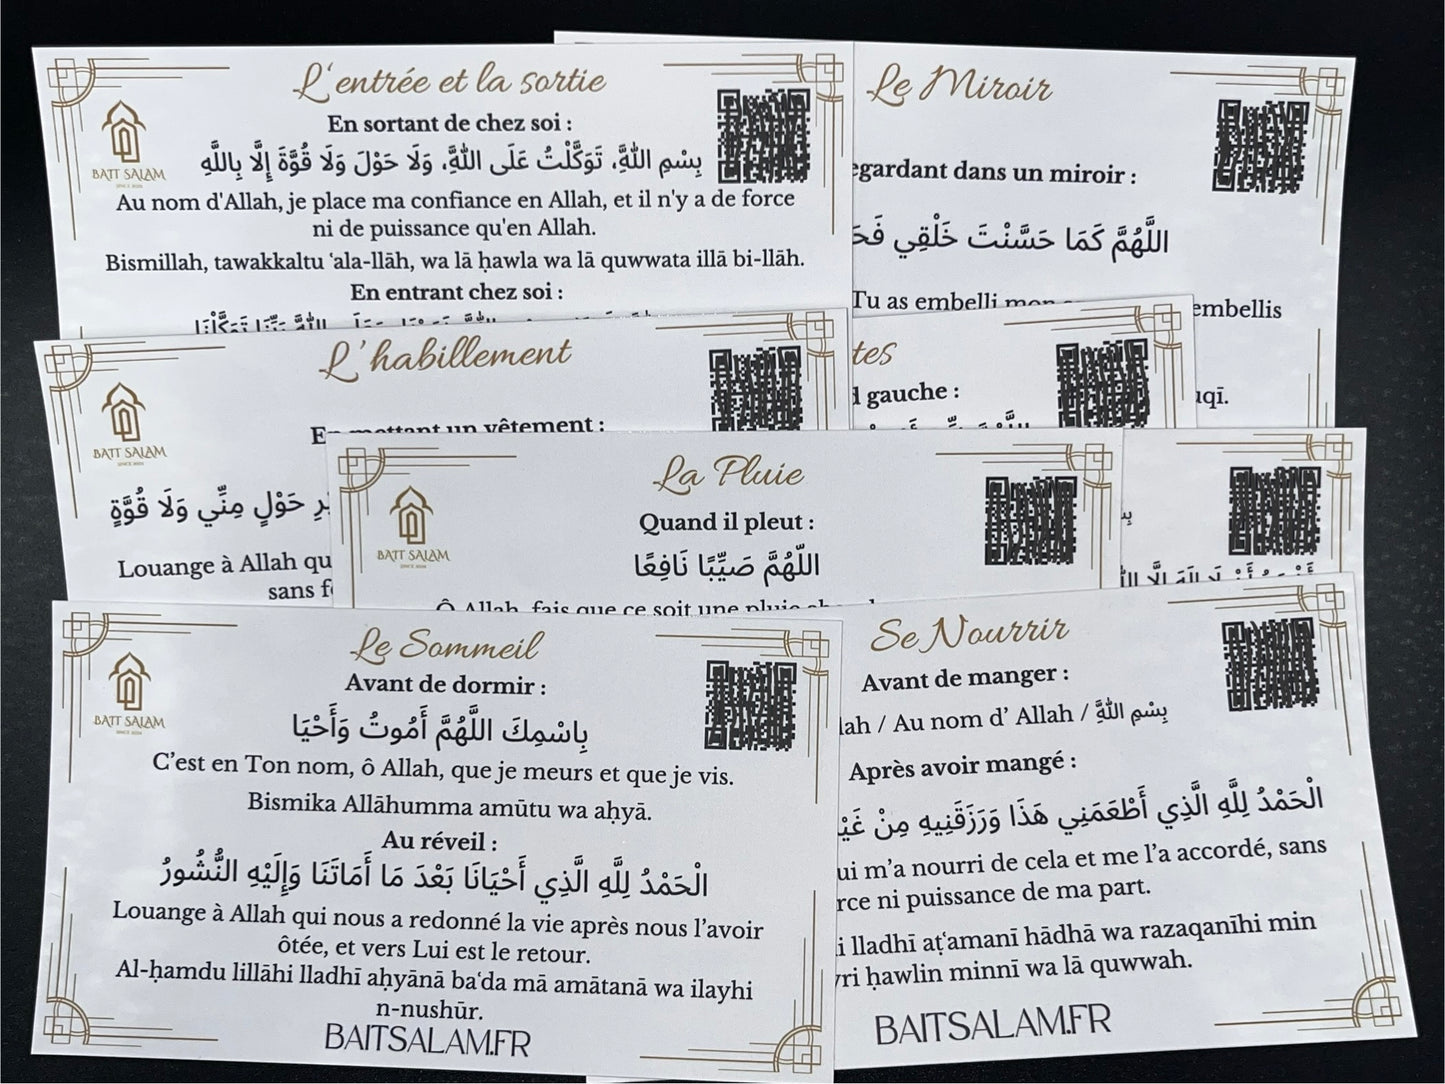 L'entrée et la sortie
En sortant de chez soi :
بِسْمِ اللَّهِ، تَوَكَّلْتُ عَلَى اللَّهِ، وَلَا حَوْلَ وَلَا قُوَّةَ إِلَّا بِاللَّهِ
BAIT SALAM
SINCE 2024
Au nom d'Allah, je place ma confiance en Allah, et il n'y a de force
ni de puissance qu'en Allah.
Bismillah, tawakkaltu ‘ala-llāh, wa lā ḥawla wa lā quwwata illā bi-llāh.
En entrant chez soi :
Le Miroir
egardant dans un miroir :
اللَّهُمَّ كَمَا حَسَّنْتَ خَلْقِي فَحَ
Tu as embelli mon
embellis
uqī.
L'habillement
BAIT SALAM
SINCE 2024
En mettant un vêtement :
حَوْلٍ مِنِّي وَلَا قُوَّةٍ
Louange à Allah qu
sans f
tes
d gauche :
La Pluie
BAIT SALAM
SINCE 2024
Quand il pleut :
اللَّهُمَّ صَيِّبًا نَافِعًا
Ô Allah, fais que ce soit une pluie
Le Sommeil
BAIT SALAM
SINCE 2024
Avant de dormir :
بِاسْمِكَ اللَّهُمَّ أَمُوتُ وَأَحْيَا
C’est en Ton nom, ô Allah, que je meurs et que je vis.
Bismika Allāhumma amūtu wa aḥyā.
Au réveil :
الْحَمْدُ لِلَّهِ الَّذِي أَحْيَانَا بَعْدَ مَا أَمَاتَنَا وَإِلَيْهِ النُّشُورُ
Louange à Allah qui nous a redonné la vie après nous l’avoir
ôtée, et vers Lui est le retour.
Al-ḥamdu lillāhi lladhī aḥyānā ba‘da mā amātanā wa ilayhi
n-nushūr.
BAITSALAM.FR
Se Nourrir
Avant de manger :
lah / Au nom d’ Allah / بِسْمِ اللَّهِ
Après avoir mangé :
الْحَمْدُ لِلَّهِ الَّذِي أَطْعَمَنِي هَذَا وَرَزَقَنِيهِ مِنْ غَيْ
ui m’a nourri de cela et me l’a accordé, sans
rce ni puissance de ma part.
i lladhī aṭ‘amanī hādhā wa razaqanīhi min
yri ḥawlin minnī wa lā quwwah.
BAITSALAM.FR